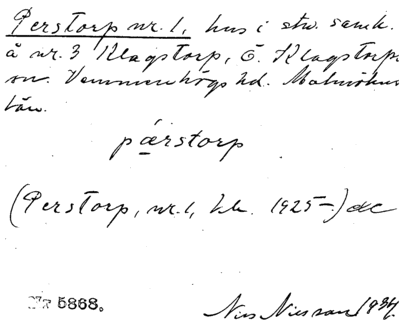 Perstorp nr. 1, hus i stv. samh.
å nr. 3 Klagstorp, Ö. Klagstorps
sn. Vemmenhögs hd. Malmöhus
län.
pǽrstorp
(Perstorp, nr. 1, 1925–)
Nr 5868.
Nils Nilsson 1934.